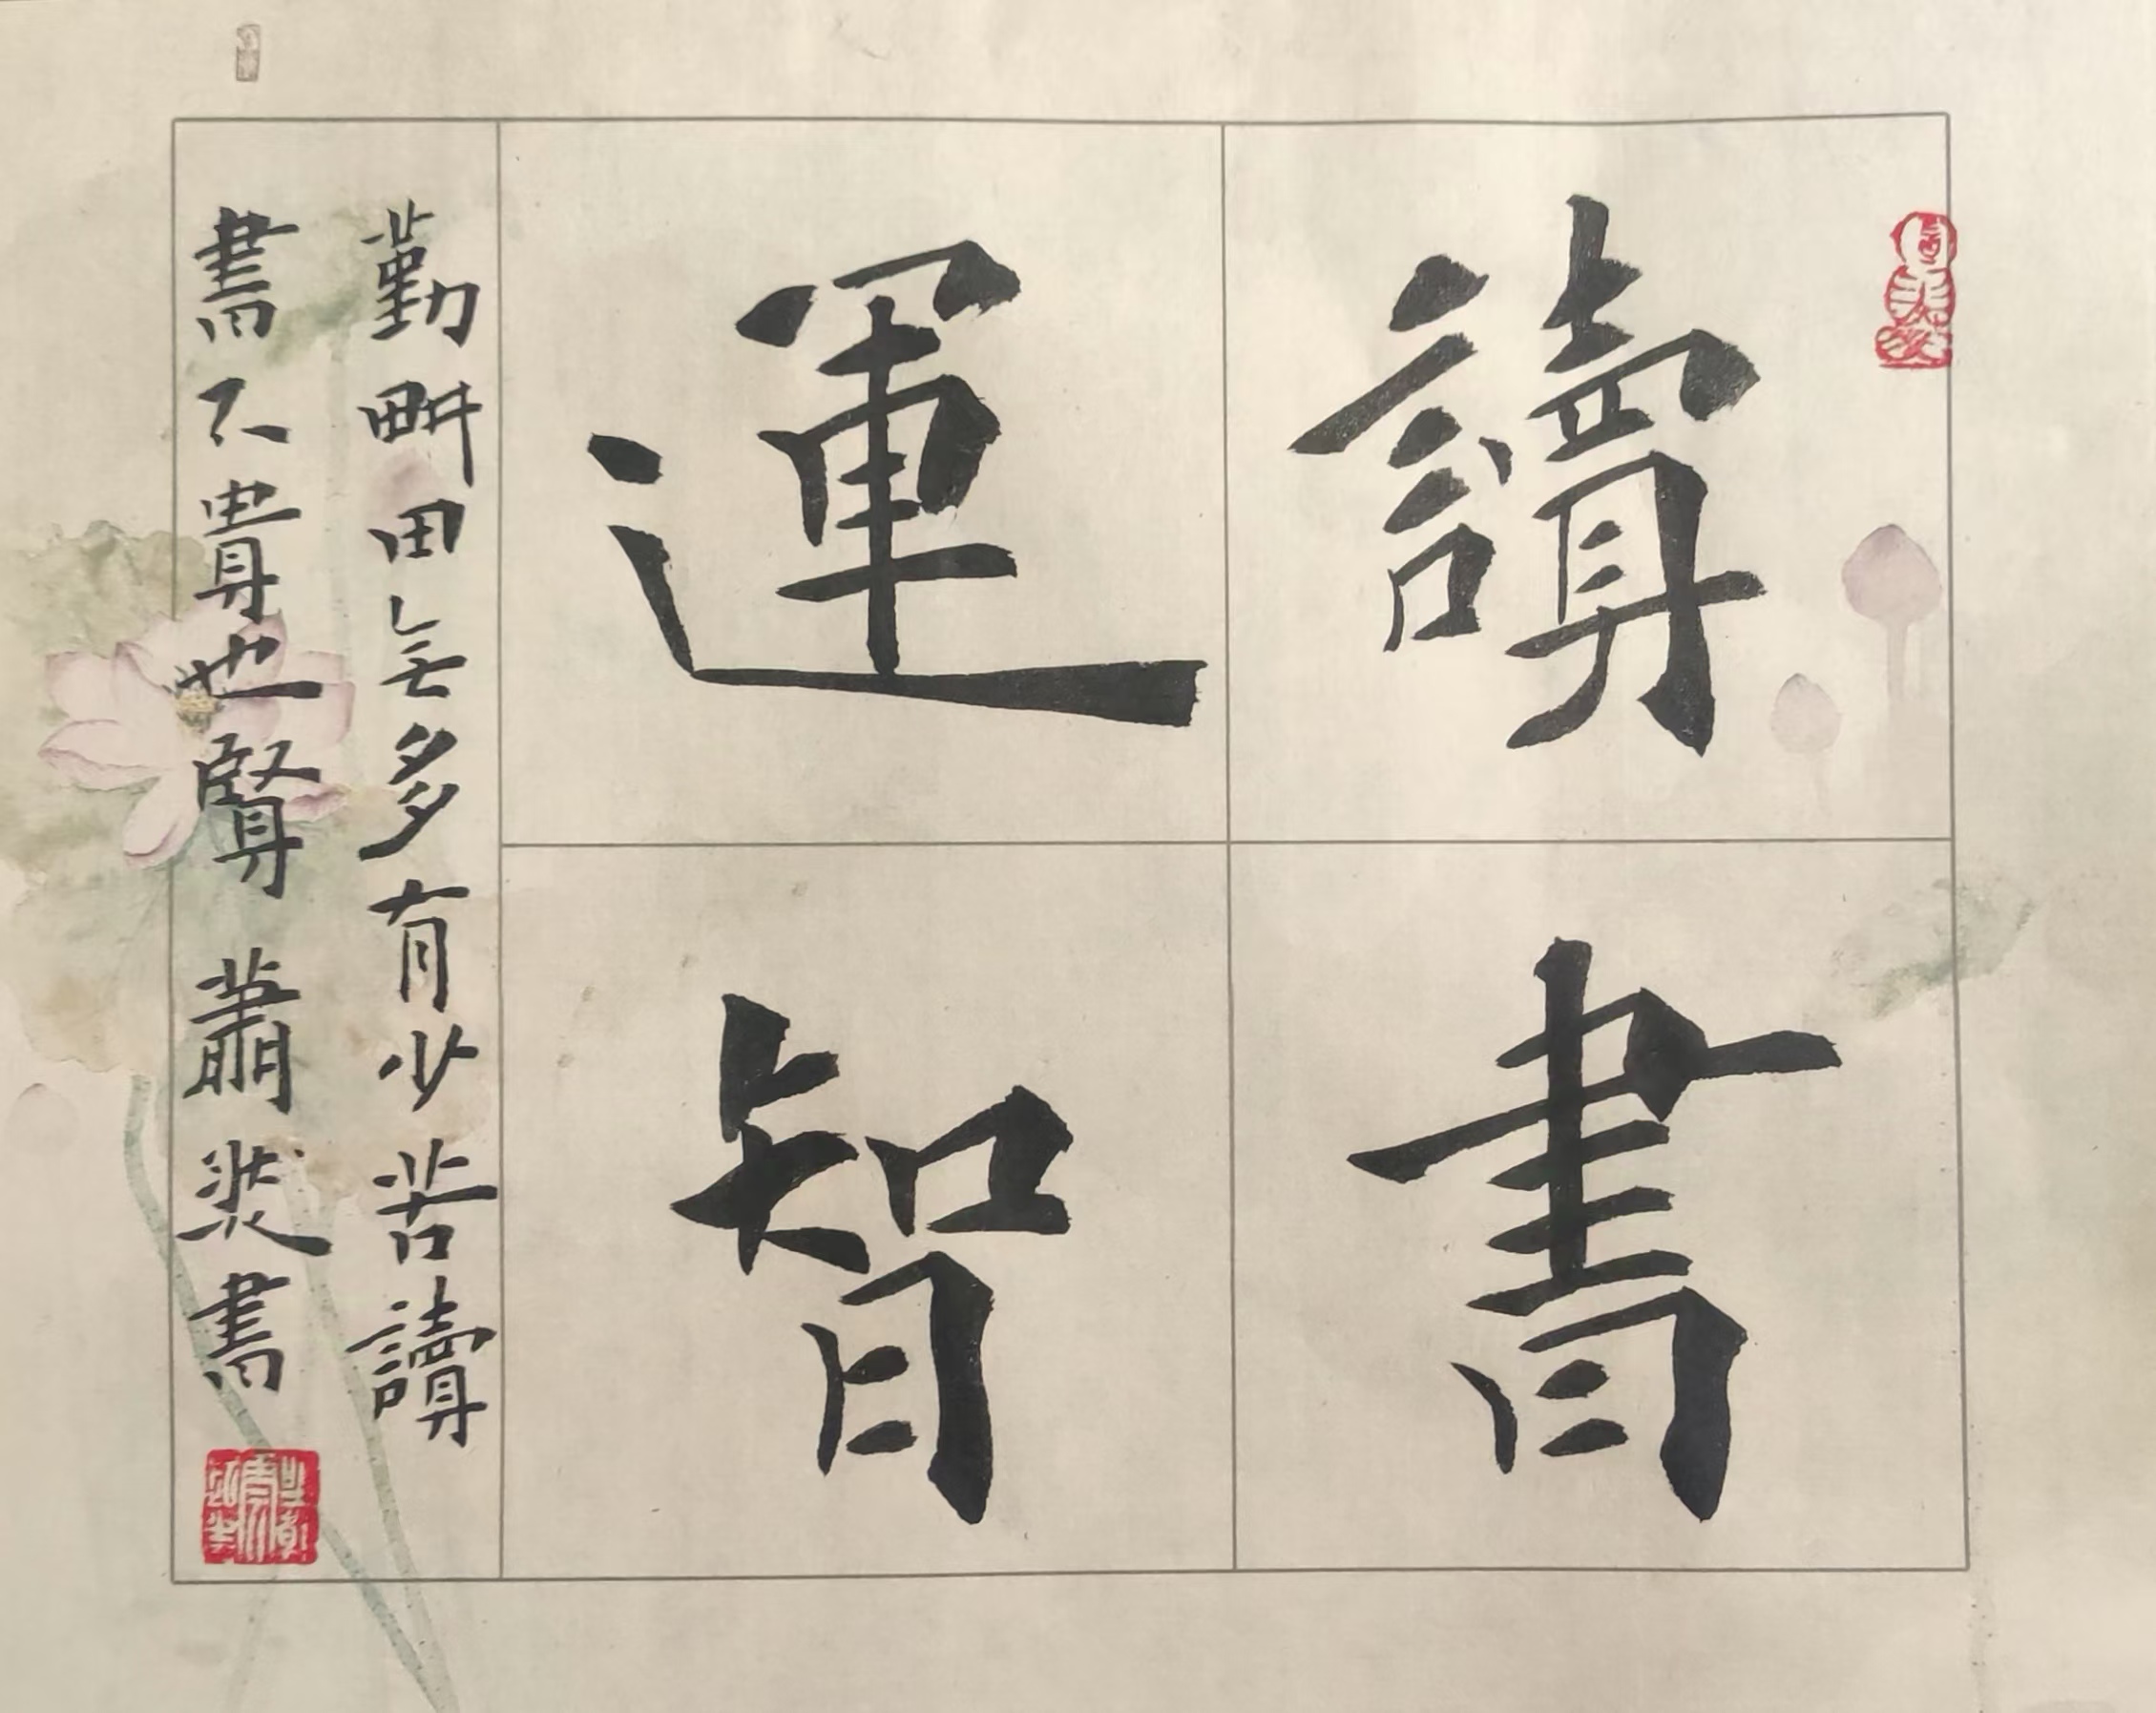 讀書
運智
勤畊田無多有少苦讀
書不貴也賢 蕭裴書